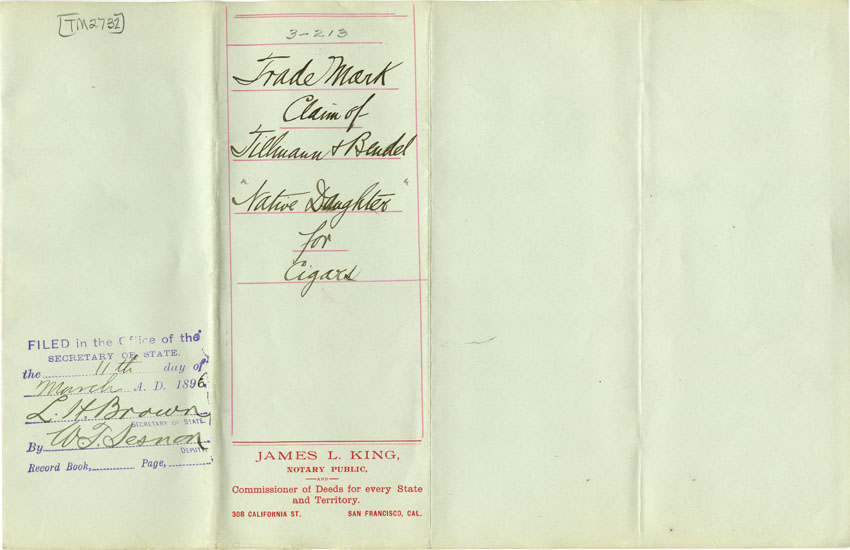 [TM2732]
3-213
Trade Mark
Claim of
Tillmann & Bendel
"Native Daughter"
for
Cigars
FILED in the Office of the
SECRETARY OF STATE.
the 11th day of
March A. D. 1896
L. H. Brown
SECRETARY OF STATE.
By W. T. Sesnon
DEPUTY
Record Book, Page,
JAMES L. KING,
NOTARY PUBLIC,
—AND—
Commissioner of Deeds for every State
and Territory.
308 CALIFORNIA ST. SAN FRANCISCO, CAL.